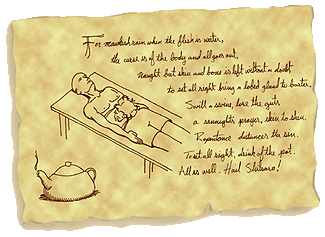 For mawkish rain when the flesh is water,
the curse is of the body and all goes out,
naught but skin and bone is left without a doubt,
to set all right bring a lobed gland to barter,
Swill a swine, lose the guts
a sennight's prayer, skin to skin.
Repentance distances the sin.
To set all right, drink of the pot.
All is well. Hail